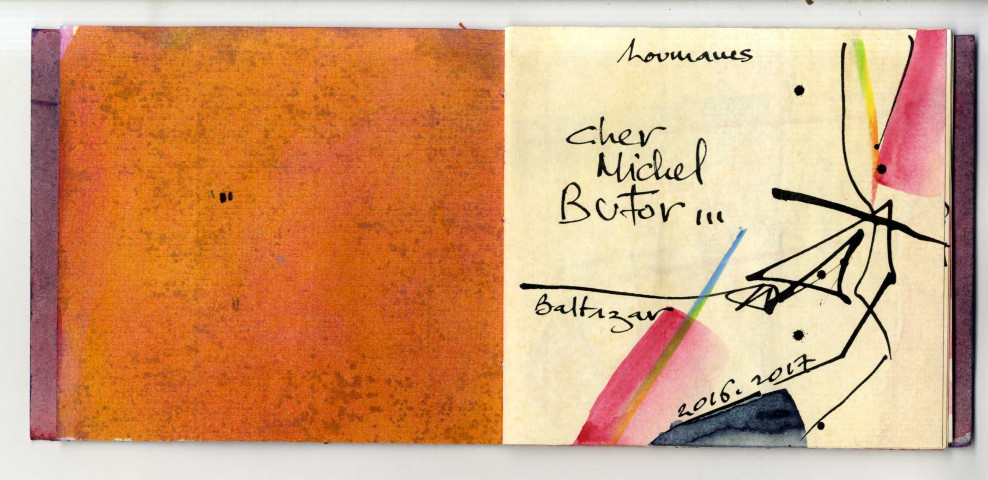 Cher
Michel
Butor ...
Baltazar
2016. 2017